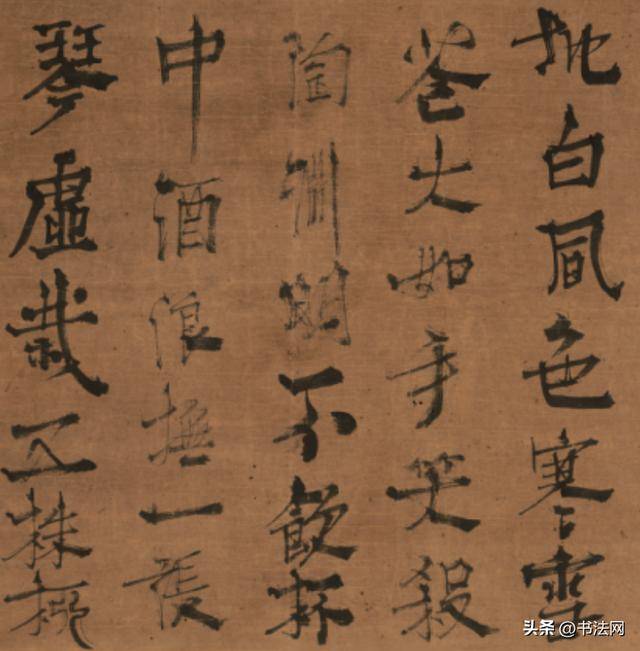 地白風色寒雪
花大如手笑殺
陶淵明不飲杯
中酒浪撫一張
琴虛栽五株柳
头条 @书法网